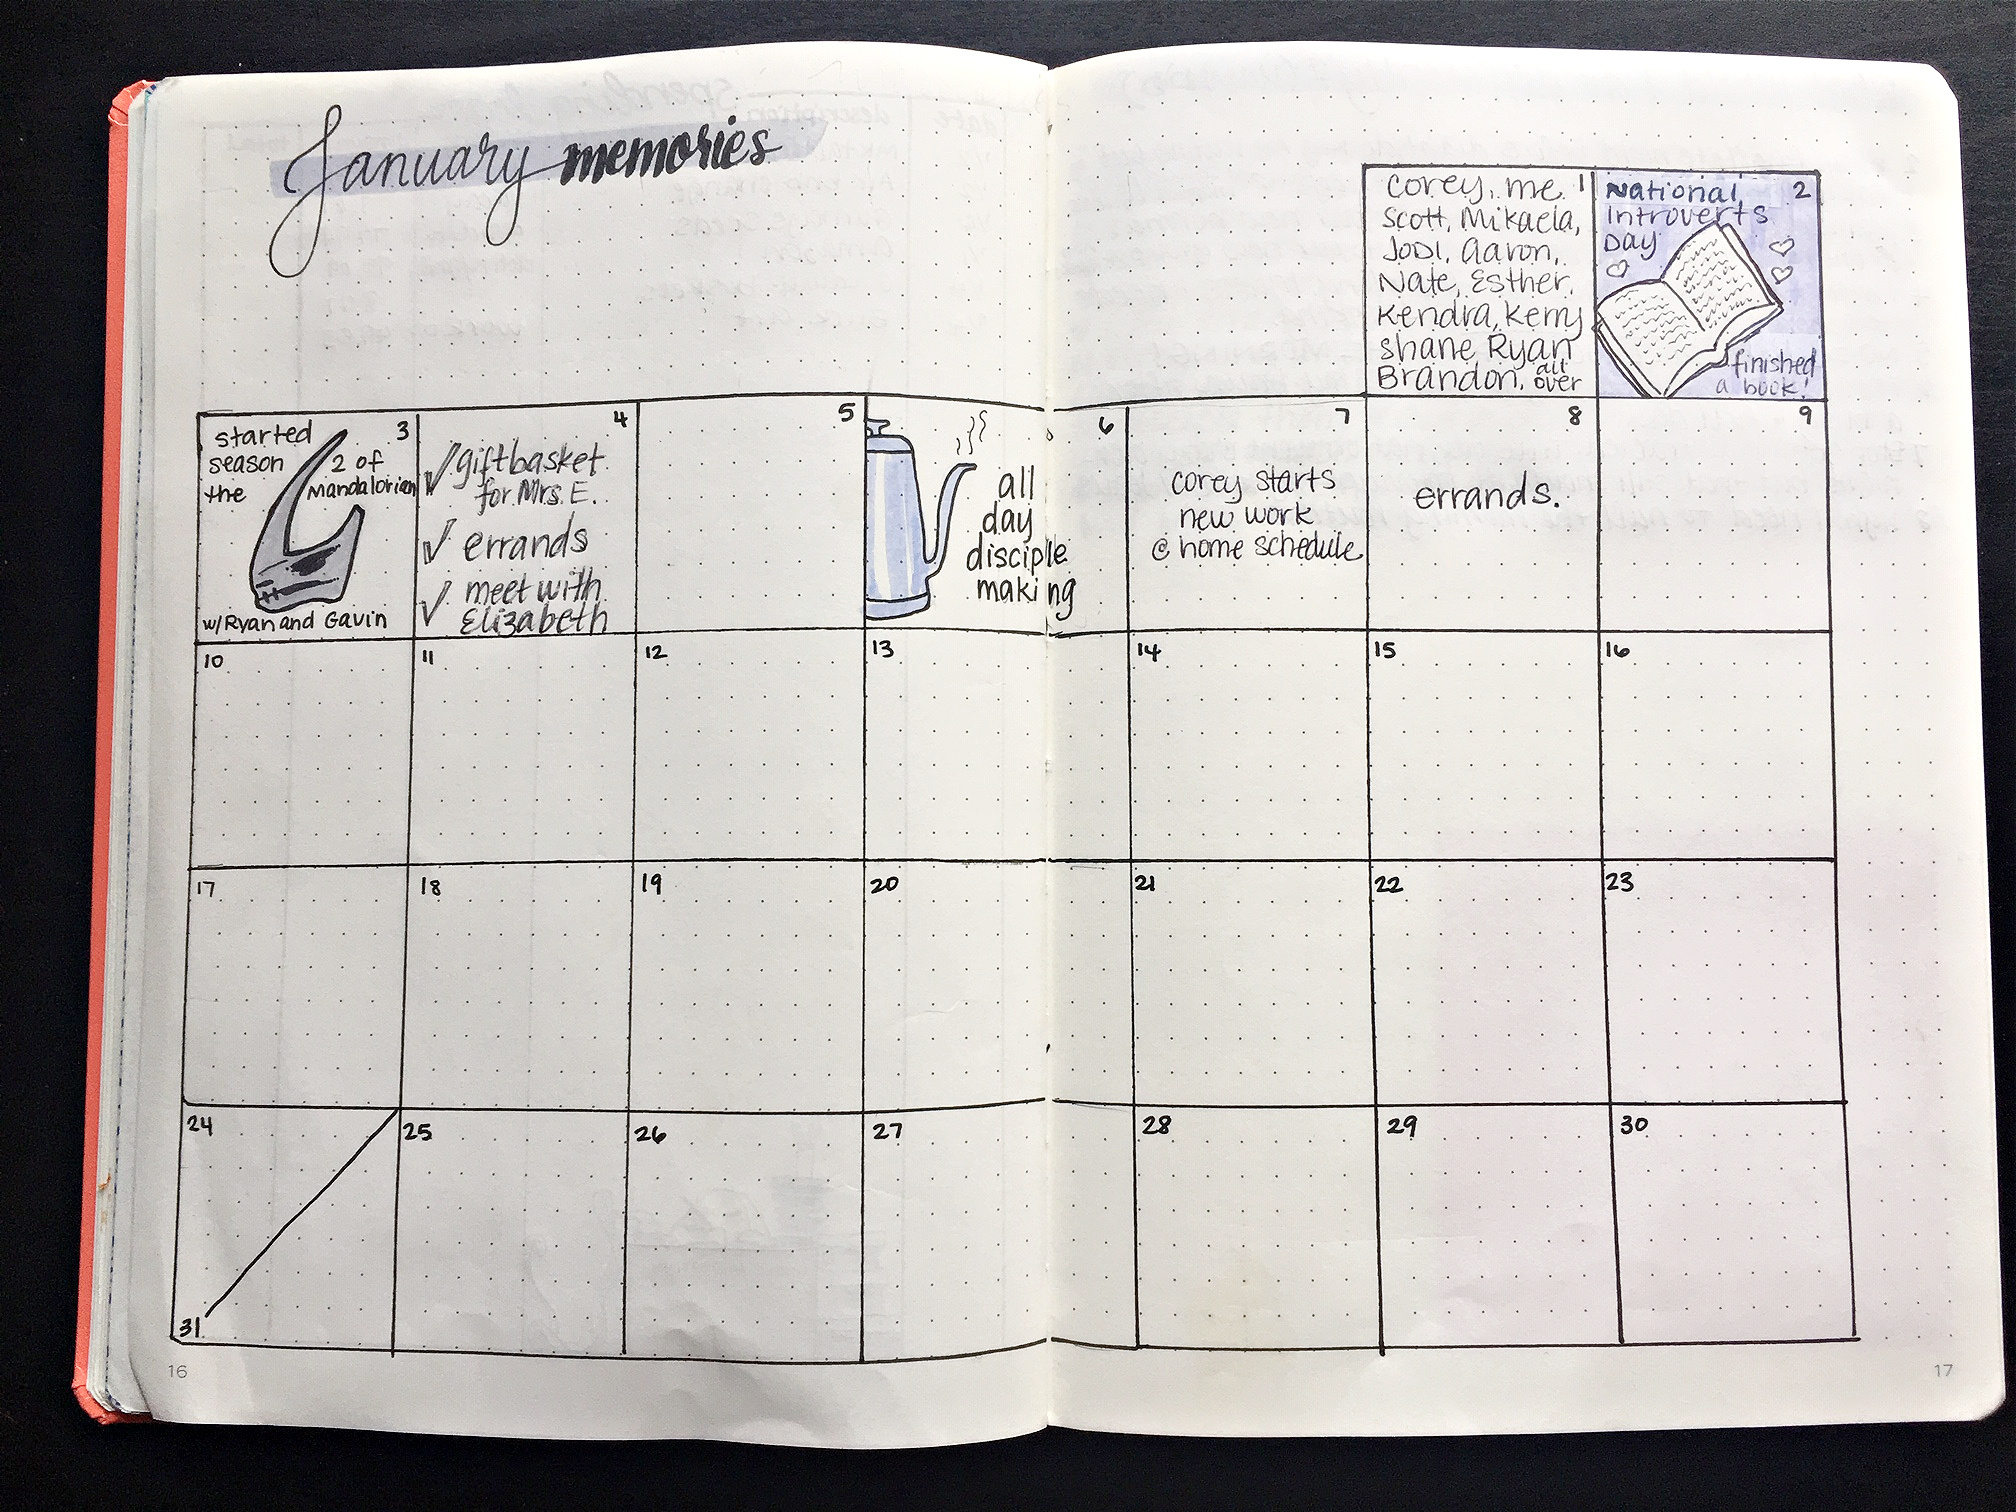 January memories
corey, me 1
Scott, Mikaela,
Jodi, Aaron,
Nate, Esther,
Kendra, Kerry
Shane, Ryan
Brandon, all over
National 2
Introverts
Day
finished
a book!
started 3
season 2 of
the Mandalorian
w/Ryan and Gavin
4
giftbasket
for Mrs. E.
errands
meet with
Elizabeth
5
6
all
day
disciple
making
7
corey starts
new work
@ home schedule
8
errands.
9
10 11 12 13 14 15 16
17 18 19 20 21 22 23
24 25 26 27 28 29 30
31
16 17